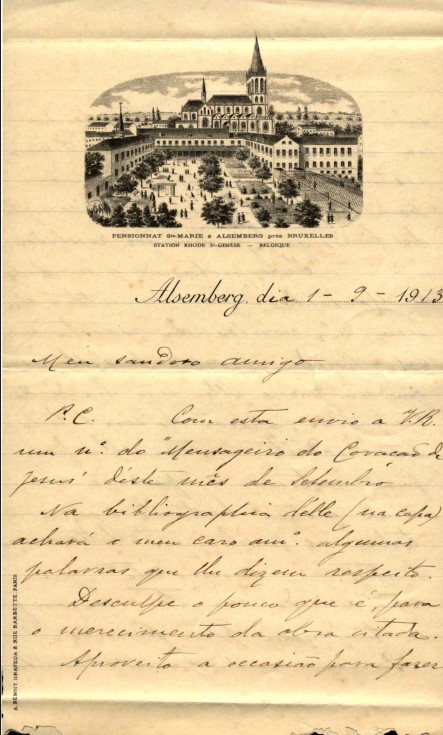 PENSIONNAT Ste-MARIE à ALSEMBERG près BRUXELLES
STATION RHODE St-GENÈSE — BELGIQUE
Alsemberg, dia 1 - 9 - 1913
Meu saudoso amigo
P.C. Com esta envio a V. R.
um nº. do "Mensageiro do Coração de
Jesus" déste mês de Setembro.
Na bibliographia délle (na capa)
achará o meu caro amº. algumas
palavras que lhe dizem respeito.
Desculpe o pouco que é, para
o merecimento da obra citada.
Aproveito a occasião para fazer
A. BENOIT, GRAVEUR, 8 RUE BARBETTE, PARIS